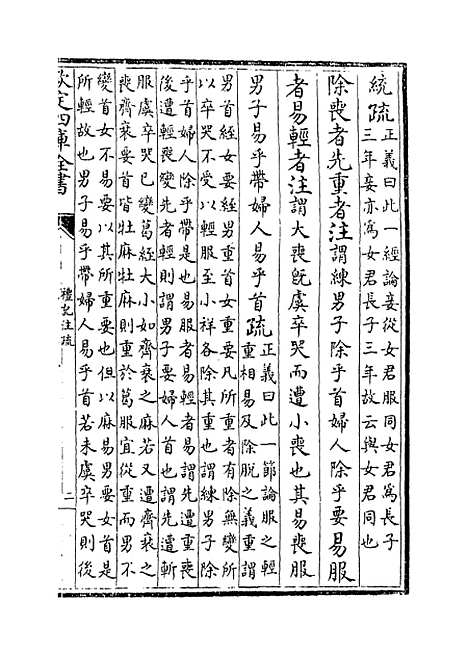 統疏正義曰此一經論妾從女君服同女君為長子
三年妾亦為女君長子三年故云與女君同也
除喪者先重者注謂練男子除乎首婦人除乎要易服
者易輕者注謂大喪旣虞卒哭而遭小喪也其易喪服
男子易乎帶婦人易乎首疏正義曰此一節論服之輕
重相易及除脫之義重謂
男首絰女要絰男重首女重要凡所重者有除無變所
以卒哭不受以輕服至小祥各除其重也謂練男子除
乎首婦人除乎帶是也易服者易輕者易謂先遭重喪
後遭輕喪變先者輕則謂男子要婦人首也謂先遭斬
服虞卒哭已變葛絰大小如齊衰之麻若又遭齊衰之
喪齊衰要首皆牡麻牡麻則重於葛服宜從重而男不
變首女不易要以其所重要也但以麻易男要女首是
所輕故也男子易乎帶婦人易乎首若未虞卒哭則後
欽定四庫全書
禮記注疏
二